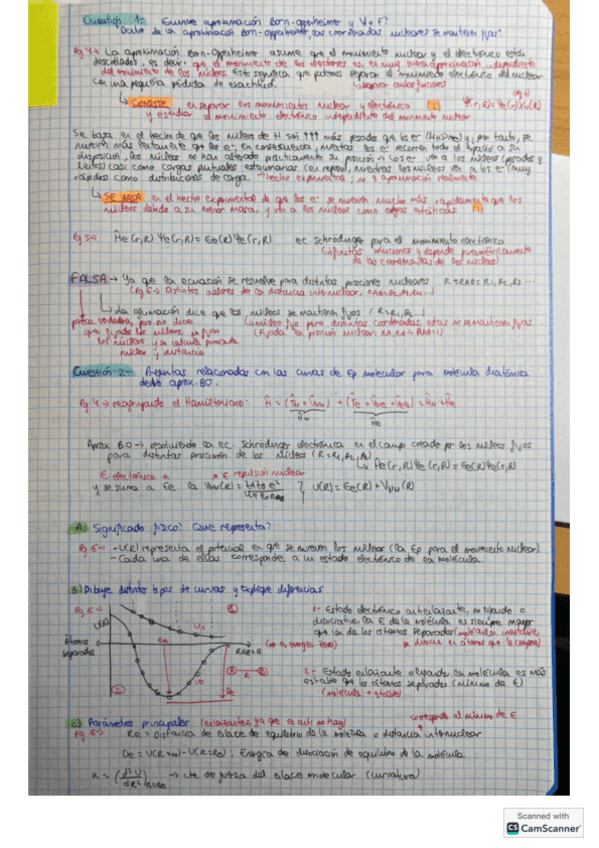 Cuestión 1:- Enuncie aproximación Born-Oppenheimer y V o F?
"Dentro de la aproximación Born-Oppenheimer, las coordenadas nucleares se mantienen fijas"
Pg 4→ La aproximación Born-Oppenheimer asume que el movimiento nuclear y el electrónico están
desacoplados, es decir, que el movimiento de los electrones es, en muy buena aproximación, independiente
del movimiento de los núcleos. Esto significa que podemos separar el movimiento electrónico del nuclear
con una pequeña pérdida de exactitud. ↳ separar autofunciones
↳ CONSISTE en separar los movimientos nuclear y electrónico
y estudiar el movimiento electrónico independiente del movimiento nuclear
Se basa en el hecho de que los núcleos de H son ↑↑↑ más pesados que los e⁻ y, por tanto, se
mueven más lentamente que los e⁻. En consecuencia, mientras los e⁻ recorren todo el espacio a su
disposición, los núcleos no han alterado prácticamente su posición → Los e⁻ ven a los núcleos (pesados y
lentos) casi como cargas puntuales estacionarias (en reposo), mientras los núcleos ven a los e⁻ (muy
rápidos) como distribuciones de carga.
↳ SE BASA en el hecho experimental de que los e⁻ se mueven mucho más rápidamente que los
núcleos debido a su menor masa, y ven a los núcleos como cargas estáticas
Pg 5→ Ĥe(r,R) Ψe(r,R) = Ee(R) Ψe(r,R) ec. Schrödinger para el movimiento electrónico
(infinitas soluciones y depende paramétricamente
de las coordenadas de los núcleos)
FALSA → Ya que la ecuación se resuelve para distintas posiciones nucleares R = RAB = R1, R2, R3 ...
(Pg 6→ Distintos valores de la distancia internuclear,
↳ La afirmación dice que los núcleos se mantienen fijos (R=R1,R2)
Cuestión 2:- Preguntas relacionadas con las curvas de Ep molecular para molécula diatómica
dentro aprox. BO.
Pg 4 → reagrupando el Hamiltoniano:
Aprox BO → resolviendo la ec. Schrödinger electrónica en el campo creado por los núcleos fijos
para distintas posiciones de los núcleos (R = R1, R2, R3)
↳ Ĥe(r,R) Ψe(r,R) = Ee(R) Ψe(r,R)
E electrónica E repulsión nuclear
y se suma a Ee la VNN(R) U(R) = Ee(R) + VNN(R)
A) Significado físico? Que representa?
Pg 6→ -U(R) representa el potencial en que se mueven los núcleos (la Ep para el movimiento nuclear).
-Cada una de ellas corresponde a un estado electrónico de la molécula.
B) Dibuje distintos tipos de curvas y explique diferencias
Pg 6→
U(R)
Átomos
separados
1
2
De
1- Estado electrónico antienlazante, no ligado o
disociativo: la E de la molécula es siempre mayor
que la de los átomos separados
2- Estado enlazante o ligado: la molécula es más
estable que los átomos separados (mínimo de E)
(molécula + estable)
C) Parámetros principales (enlazantes, ya que a anti no hay) corresponde al mínimo de E
Pg 6→ Re = Distancia de enlace de equilibrio de la molécula o distancia internuclear
De = U(R=∞) - U(R=Re) ; Energía de disociación de equilibrio de la molécula.
→ cte de fuerza del enlace molecular (curvatura)
Scanned with
CS CamScanner